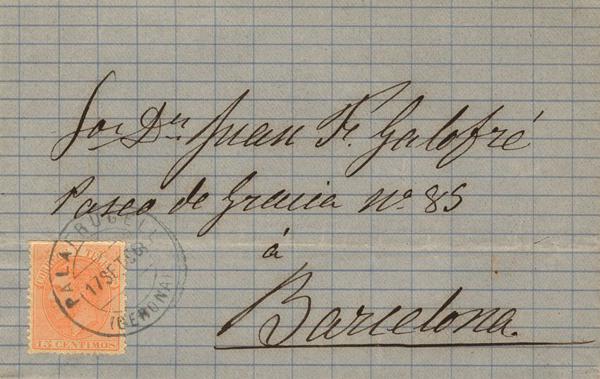 Sor Dn Juan Fr. Galofré
Paseo de Gracia Nº 85
á
Barcelona
PALAFRUGELL
17 SET
(GERONA)
CORREOS Y TELEGS
15 CENTIMOS